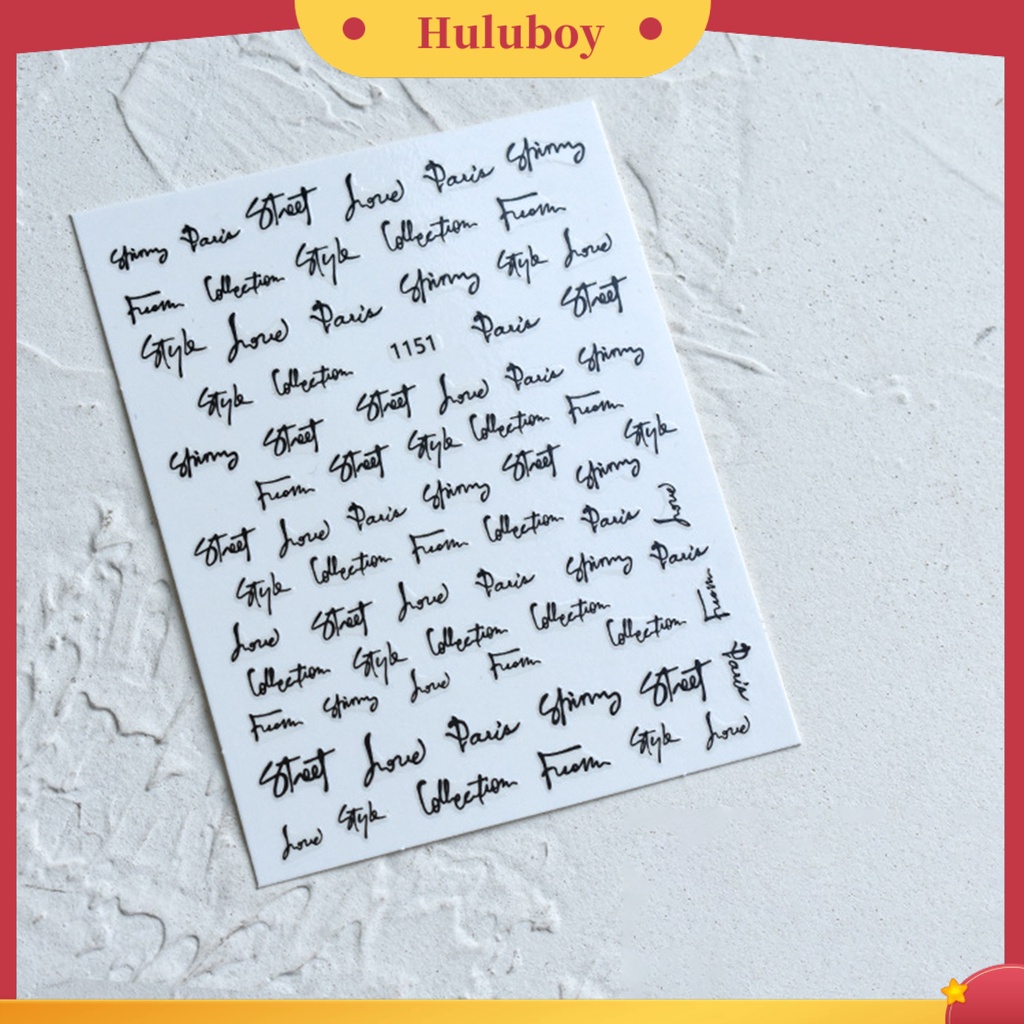 Huluboy
Spinny Paris Street Love Paris Spinny
From Collection Style Collection From
Style Love Paris Spinny Style Love
Style Collection 1151 Paris Street
Spinny Street Street Love Paris Spinny
From Street Style Collection From
Street Love Paris Spinny Street Spinny Style
Style Collection From Collection Paris Love
Love Street Love Paris Spinny Paris
Collection Style Collection Collection Collection From
From Spinny Love From
Street Love Paris Spinny Street Paris
Love Style Collection From Style Love